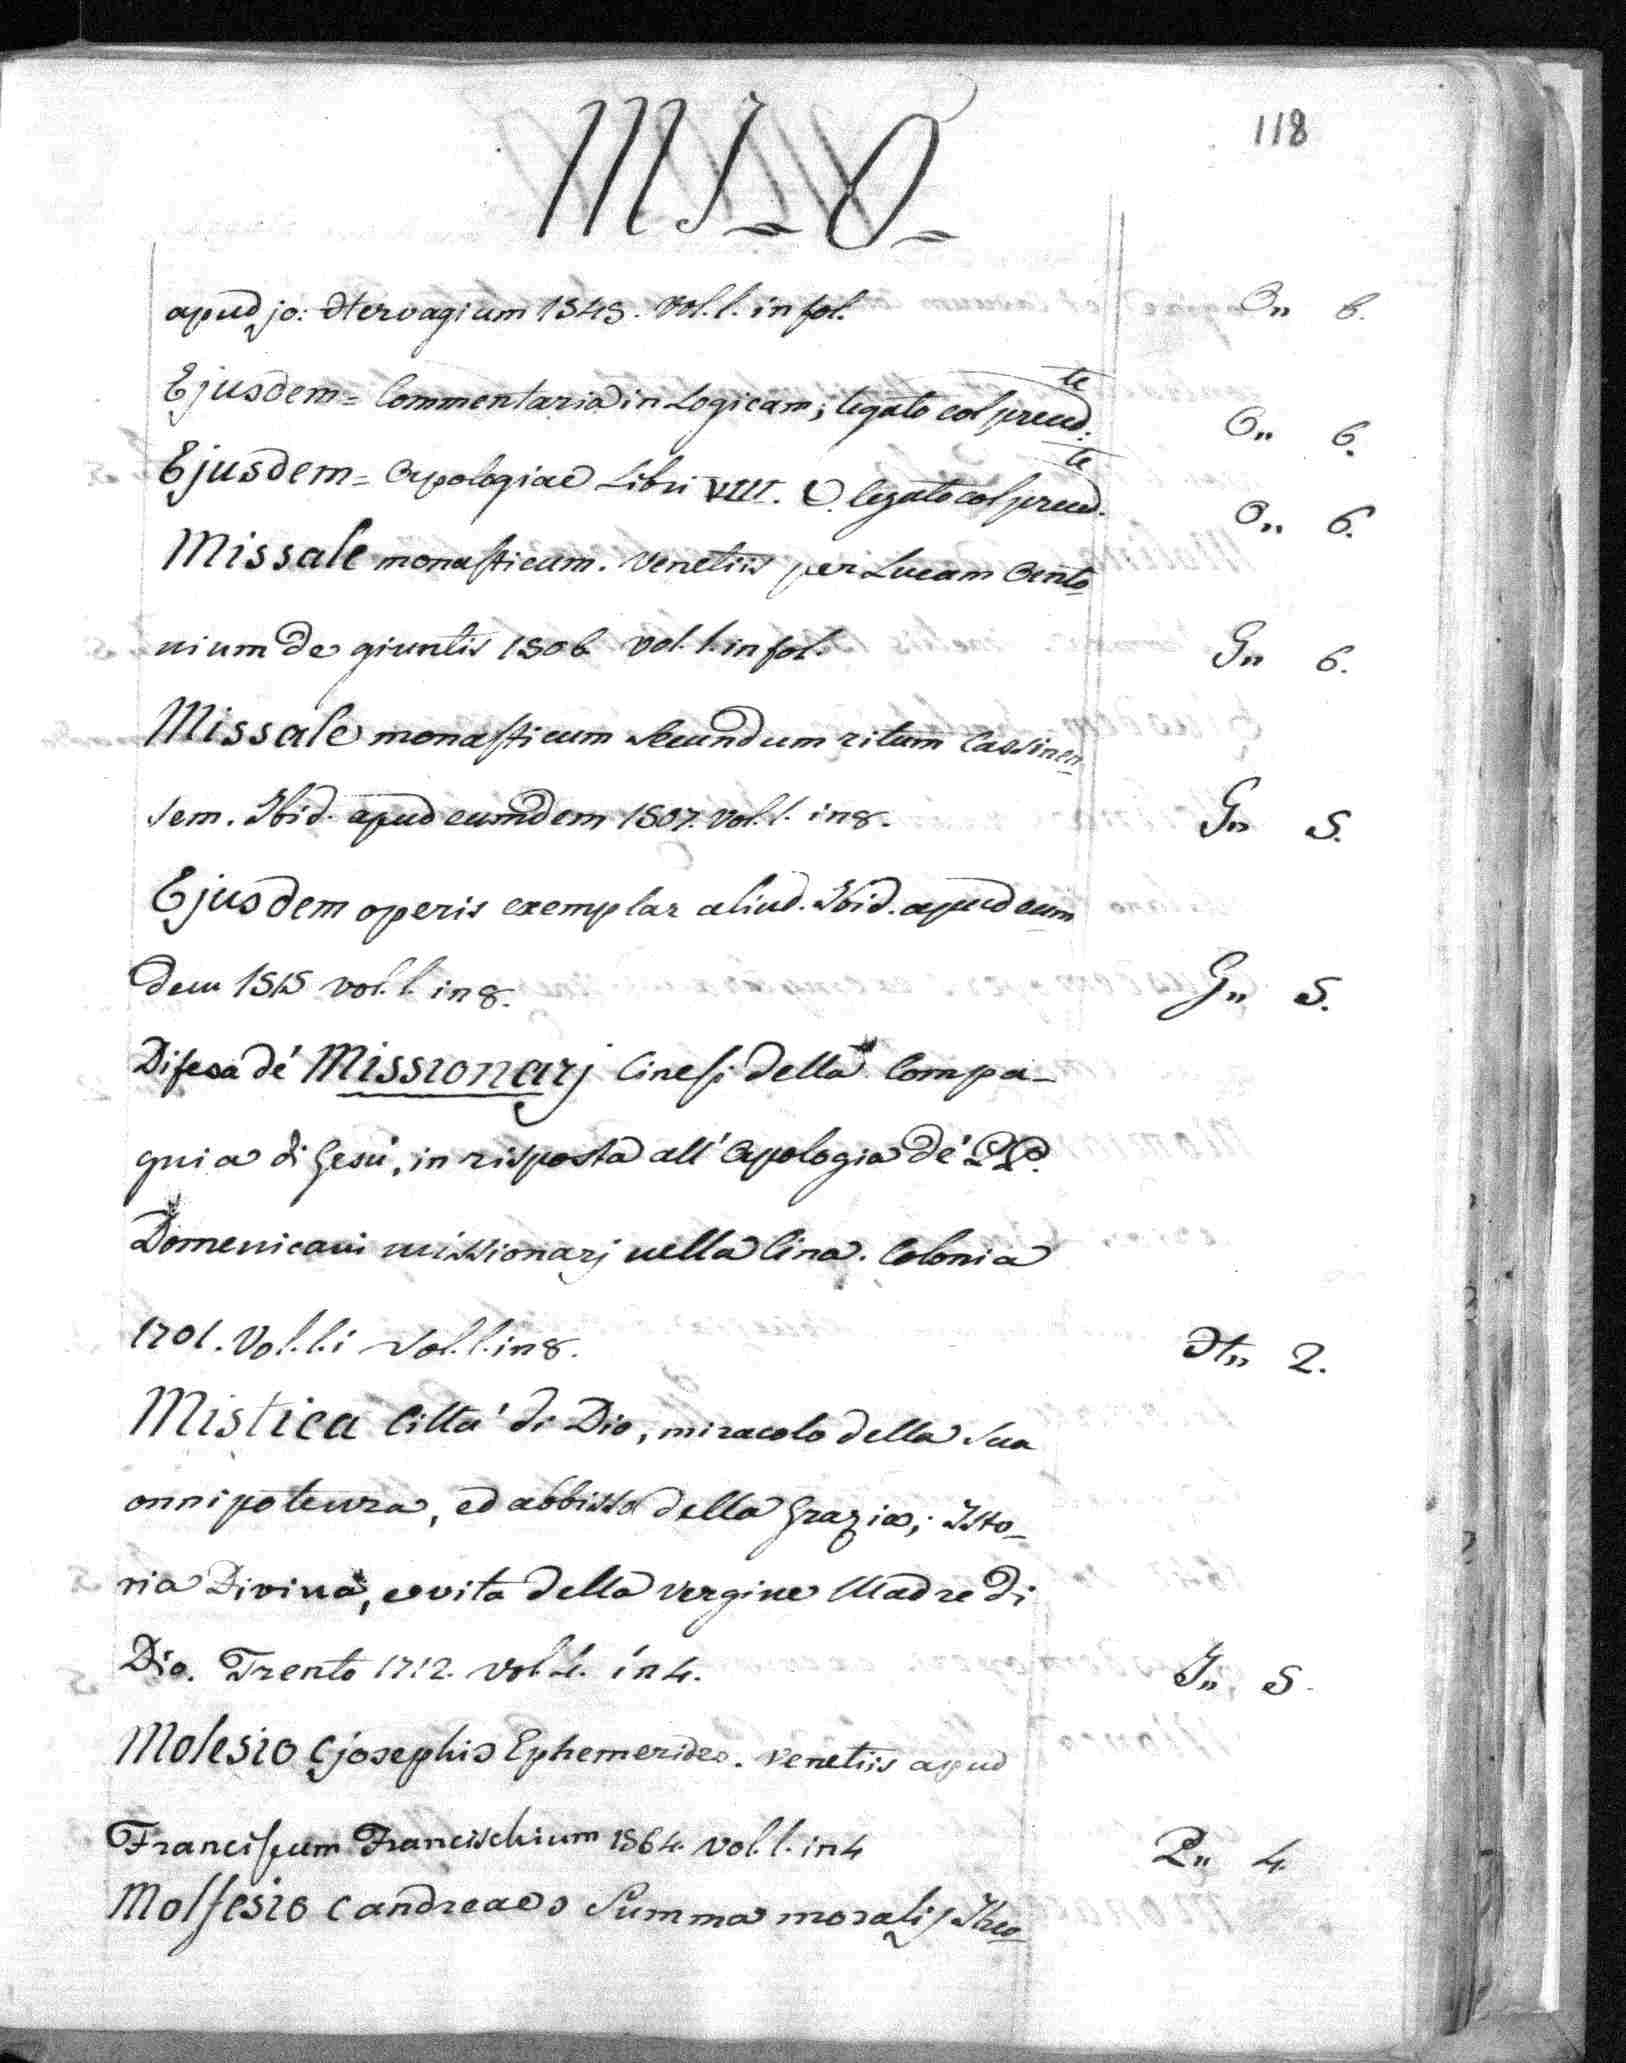 118
MI=O=
apud jo: Hervagium 1545. Vol. 1. in fol. O,, 6.
Ejusdem = Commentaria in Logicam; legato col preced:te O,, 6.
Ejusdem = Apologiae Libri VIII. legato col preced.te O,, 6.
Missale monasticum. Venetiis per Lucam Anto=
nium de giuntis 1506 Vol. 1. in fol. G,, 6.
Missale monasticum secundum ritum Cassinen=
sem. Ibid. apud eumdem 1507. Vol. 1. in 8. G,, 5.
Ejusdem operis exemplar aliud. Ibid. apud eum=
dem 1515 vol. 1. in 8. G,, 5.
Difesa dé Missionarj Cinesi della Compa-
gnia di Gesù, in risposta all' Apologia dé PP.
Domenicani missionarj nella Cina. Colonia
1701. Vol. 1. i Vol. 1. in 8. H,, 2.
Mistica Città di Dio, miracolo della sua
onnipotenza, ed abbisso della Grazia; Isto-
ria Divina, e vita della Vergine Madre di
Dio. Trento 1712. Vol. 4. in 4. I,, 5.
Molesio (josephi) Ephemerides. Venetiis apud
Franciscum Francischium 1564. Vol. 1. in 4 P,, 4.
Molfesio (andreae) Summa moralis Theo=